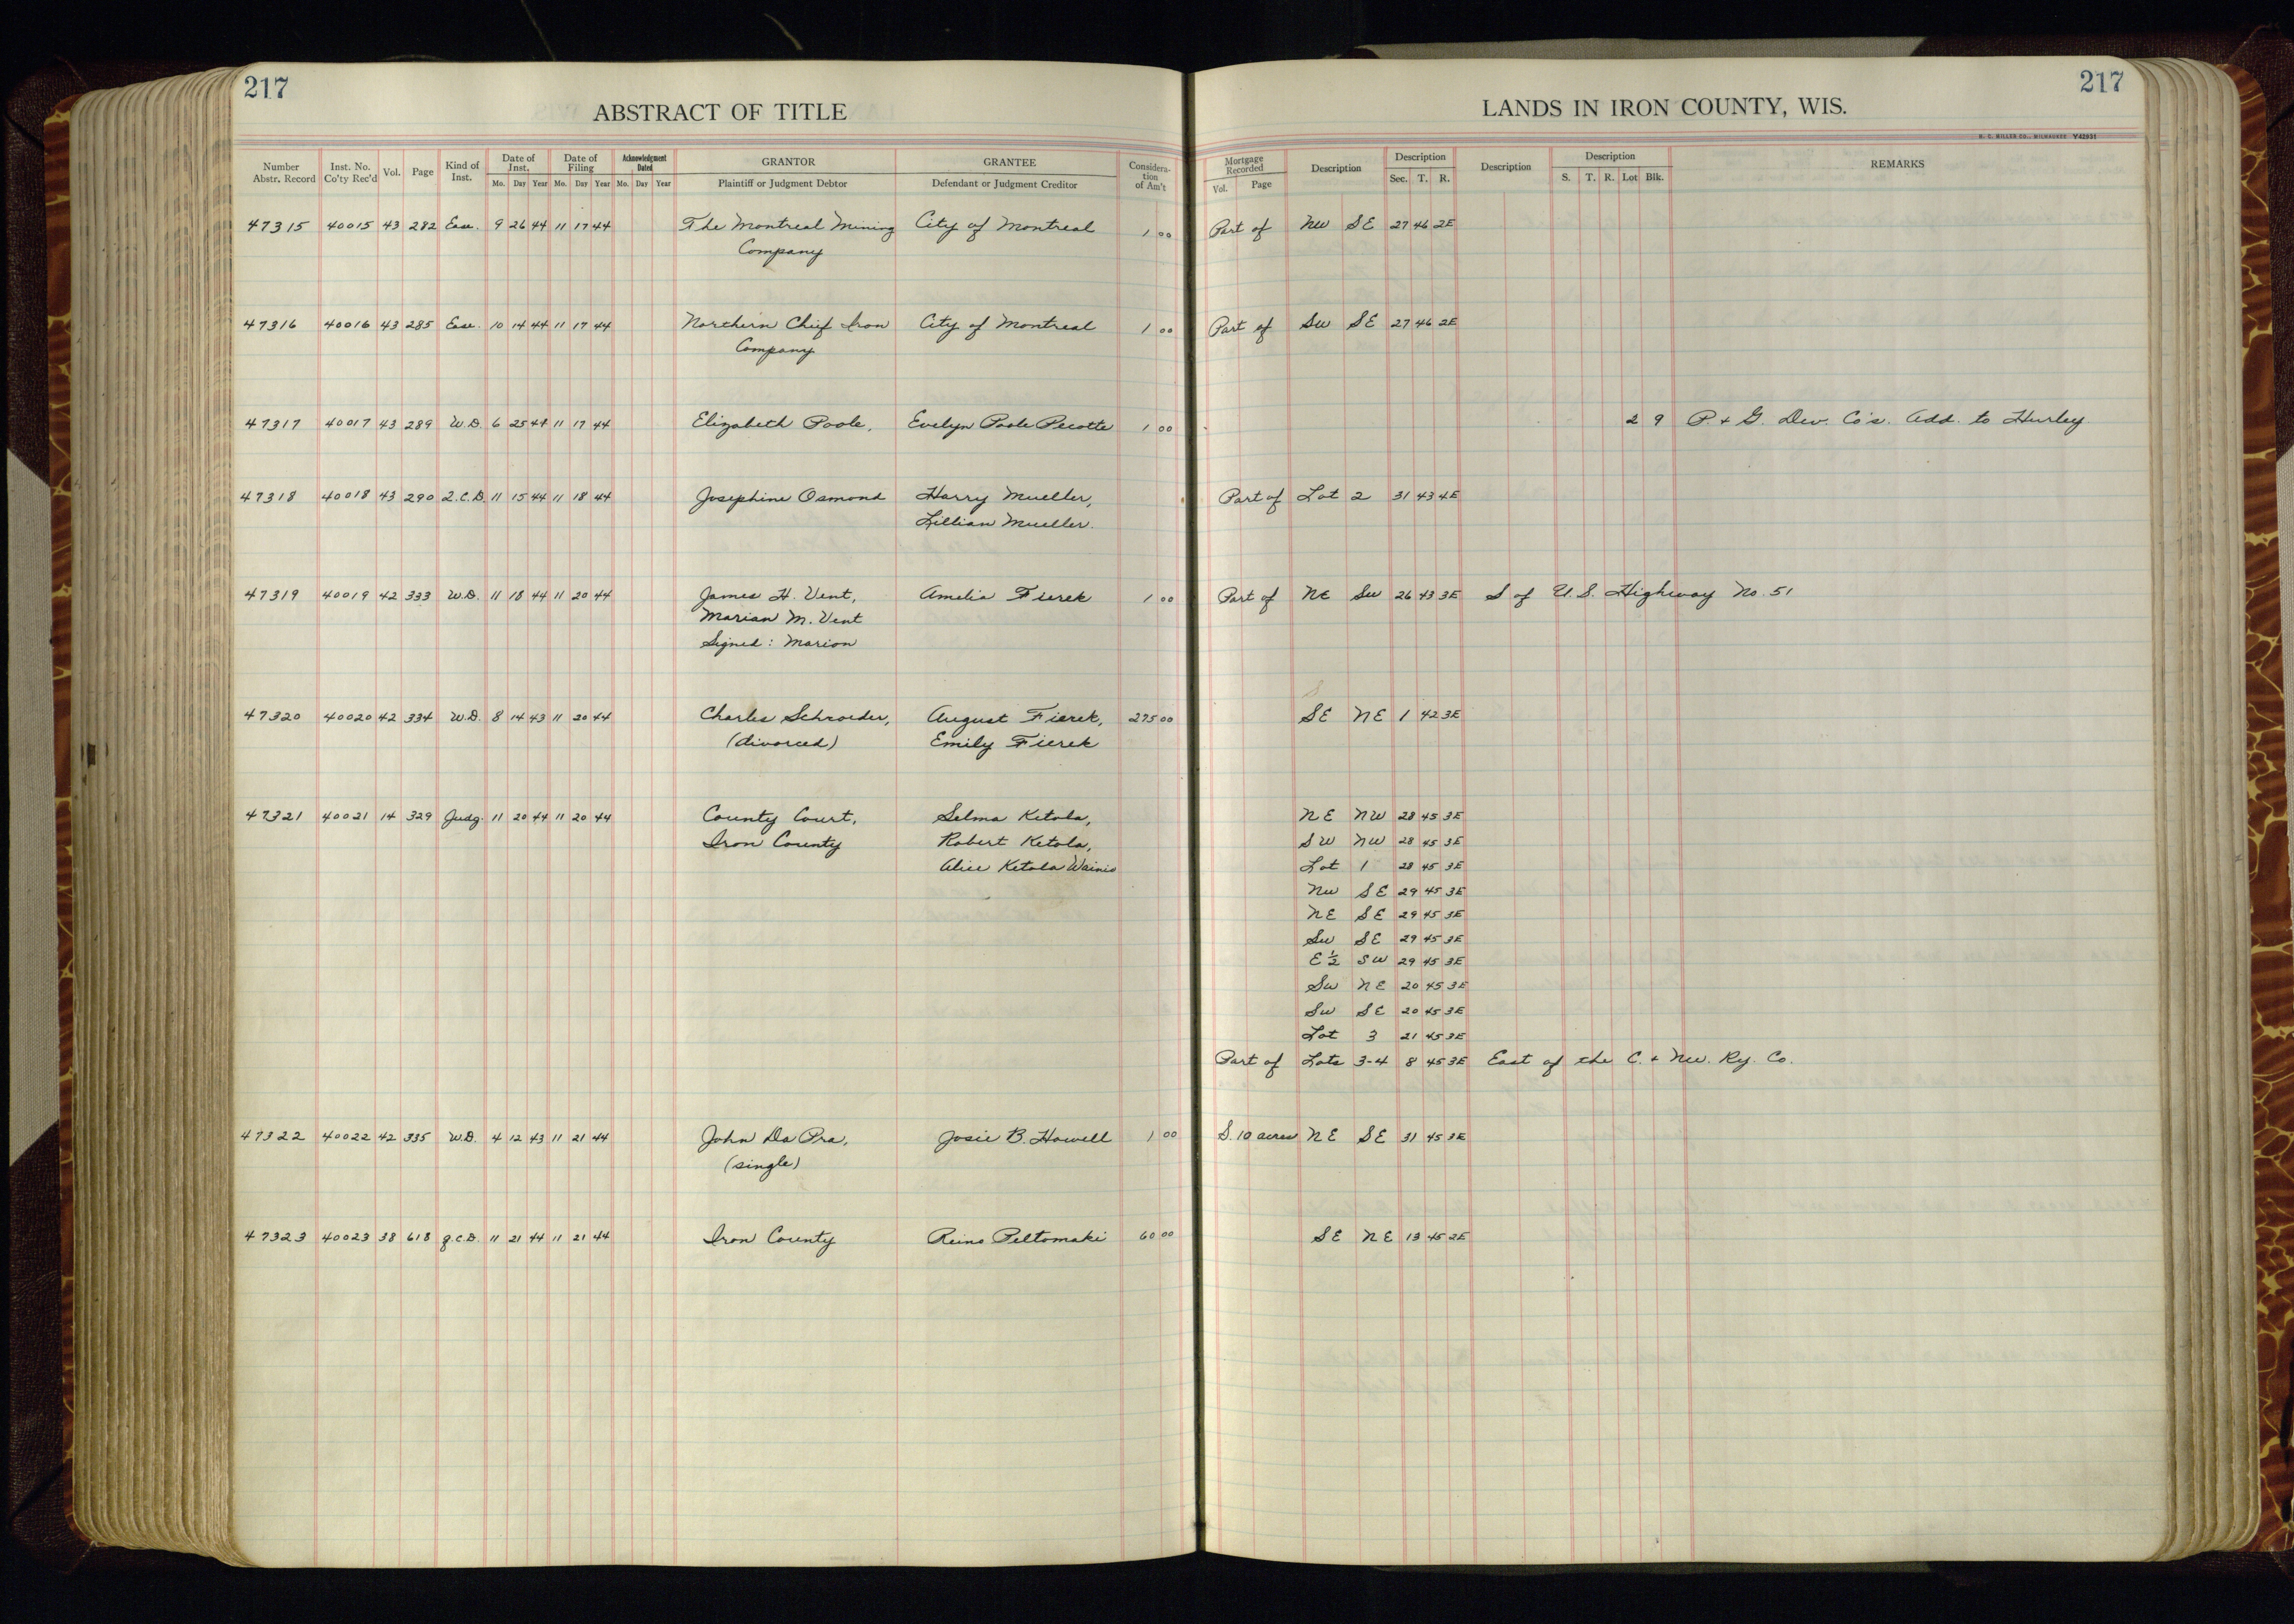 217
217
ABSTRACT OF TITLE
LANDS IN IRON COUNTY, WIS.
H. C. MILLER CO., MILWAUKEE Y42931
Number Abstr. Record Inst. No. Co'ty Rec'd Vol. Page Kind of Inst. Date of Inst. Mo. Day Year Date of Filing Mo. Day Year Acknowledgment Dated Mo. Day Year GRANTOR Plaintiff or Judgment Debtor GRANTEE Defendant or Judgment Creditor Considera-tion of Am't Mortgage Recorded Vol. Page Description Description Sec. T. R. Description Description S. T. R. Lot Blk. REMARKS
47315 40015 43 282 Ease. 9 26 44 11 17 44 The Montreal Mining City of Montreal 1 00 Part of NW SE 27 46 2E
Company
47316 40016 43 285 Ease. 10 14 44 11 17 44 Northern Chief Iron City of Montreal 1 00 Part of SW SE 27 46 2E
Company
47317 40017 43 289 W.D. 6 25 44 11 17 44 Elizabeth Poole, Evelyn Poole Pecotte 1 00 2 9 P. & G. Dev. Co's. Add. to Hurley
47318 40018 43 290 Q.C.D. 11 15 44 11 18 44 Josephine Osmond Harry Mueller, Part of Lot 2 31 43 4E
Lillian Mueller.
47319 40019 42 333 W.D. 11 18 44 11 20 44 James H. Vent, Amelia Fierek 1 00 Part of NE SW 26 43 3E S of U.S. Highway No. 51
Marian M. Vent
Signed: Marion
47320 40020 42 334 W.D. 8 14 43 11 20 44 Charles Schroeder, August Fierek, 275 00 SE NE 1 42 3E
(divorced) Emily Fierek
47321 40021 14 329 Judg. 11 20 44 11 20 44 County Court, Selma Ketola, NE NW 28 45 3E
Iron County Robert Ketola, SW NW 28 45 3E
Alice Ketola Wainio Lot 1 28 45 3E
NW SE 29 45 3E
NE SE 29 45 3E
SW SE 29 45 3E
E 1/2 SW 29 45 3E
SW NE 20 45 3E
SW SE 20 45 3E
Lot 3 21 45 3E
Part of Lots 3-4 8 45 3E East of the C. & NW. Ry. Co.
47322 40022 42 335 W.D. 4 12 43 11 21 44 John Da Pra, Josie B. Howell 1 00 S. 10 acres NE SE 31 45 3E
(single)
47323 40023 38 618 Q.C.D. 11 21 44 11 21 44 Iron County Reino Peltomaki 60 00 SE NE 13 45 2E